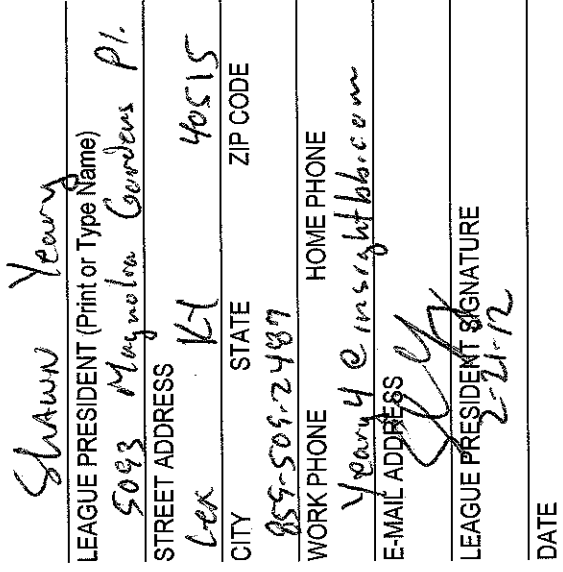 Shawn Yeary
LEAGUE PRESIDENT (Print or Type Name)
5093 Magnolia Gardens Pl.
STREET ADDRESS
Lex KY 40515
CITY STATE ZIP CODE
859-509-2487
WORK PHONE HOME PHONE
Yeary4@insightbb.com
E-MAIL ADDRESS
LEAGUE PRESIDENT SIGNATURE
2-21-12
DATE